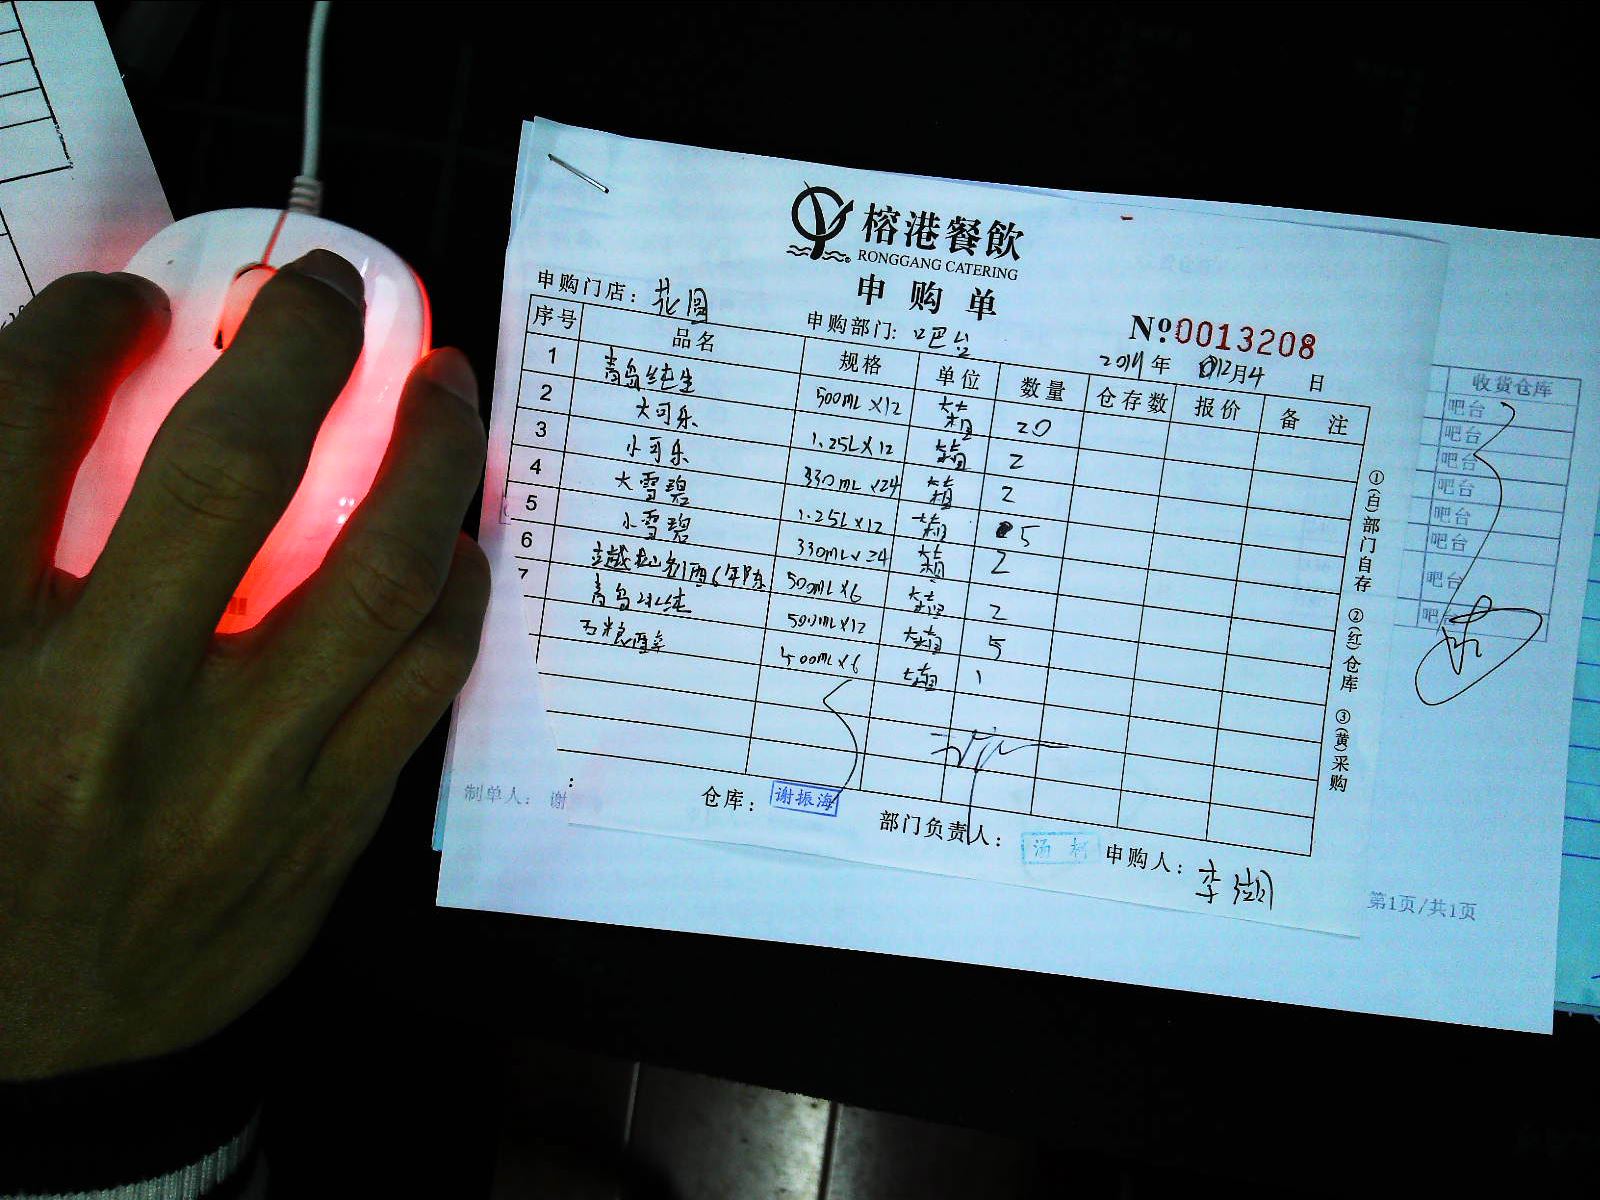 榕港餐飲
RONGGANG CATERING
申购单
申购门店：花园 申购部门：吧台 No.0013208
2011年12月4日
序号 品名 规格 单位 数量 仓存数 报价 备注
1 青岛纯生 500ML×12 箱 20
2 大可乐 1.25L×12 箱 2
3 小可乐 330ML×24 箱 2
4 大雪碧 1.25L×12 箱 5
5 小雪碧 330ML×24 箱 2
6 500ML×6 箱 2
7 青岛冰纯 500ML×12 箱 5
五粮 400ML×6 箱 1
①(白)部门自存 ②(红)仓库 ③(黄)采购
仓库：谢振海 部门负责人：汤 申购人：李
收货仓库
吧台
吧台
吧台
吧台
吧台
吧台
吧台
吧台
制单人：谢
第1页/共1页